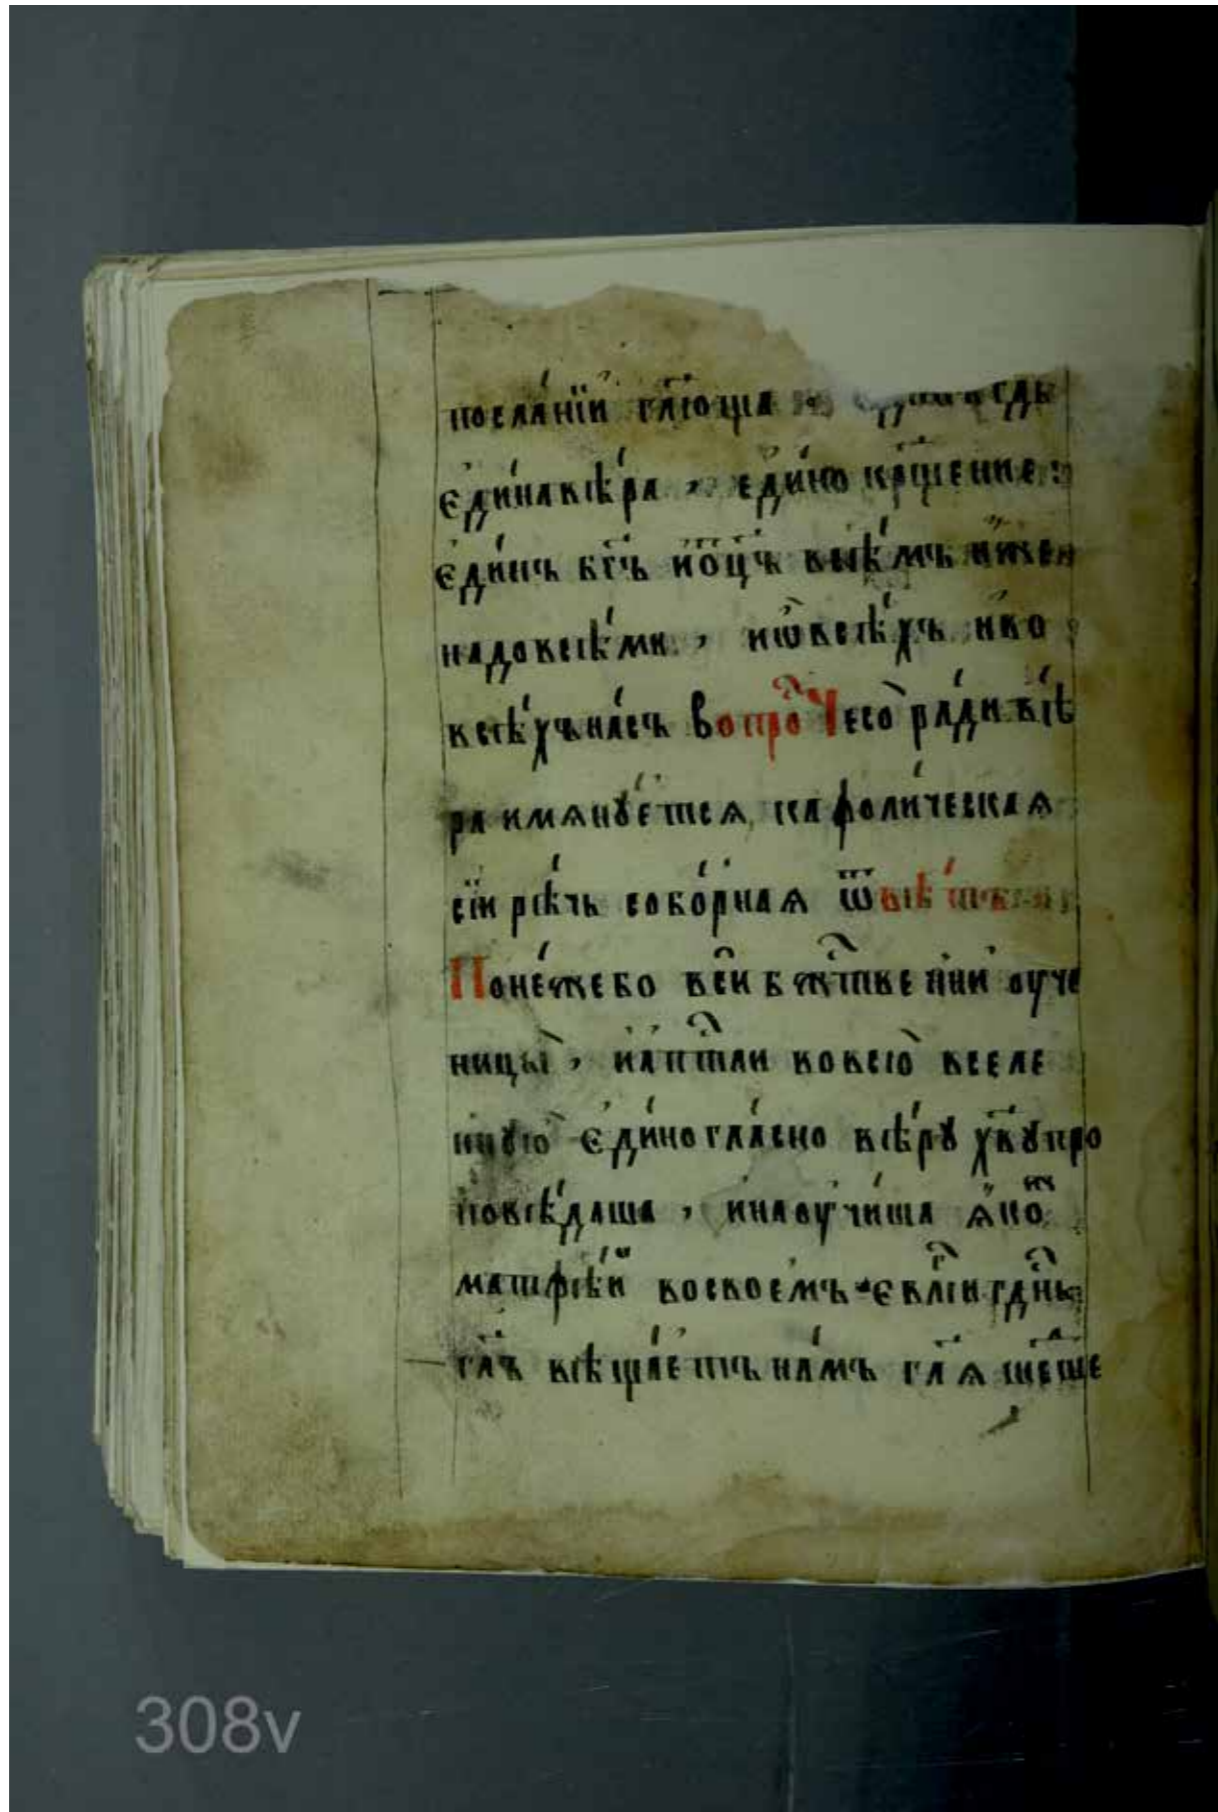 посла́нїи гл҃юща гдь
є҆ди́на вѣ́ра , є҆ди́но кр҃щение
є҆ди́нъ бг҃ъ и҆ ѻ҆ц҃ъ всѣ́мъ и҆же н
надо всѣ́ми , и҆ ѿ всѣ́хъ и҆ во
всѣ́хъ на́съ вопро̾ Чесо̀ ра́ди вѣ́
ра имѧнꙋ́етсѧ каѳоли́ческаѧ
сїи рѣ́чь собо́рнаѧ ѿвѣ́тъ
Поне́же бо вси̑ бжⷭ҇твеннїи оуче
ницы̀ , и҆ а҆пⷭ҇тли во всю̀ вселе
ннꙋю̀ є҆ди́ногла́сно вѣ́рꙋ хв҃ꙋ про
повѣ́даша , и҆ наоучи́ша ꙗ҆коⷤ
матѳѣ́й во своє́мъ є҆ѵⷢ҇лїи гдⷭ҇нь
гл҃ъ вѣща́етъ на́мъ гл҃ѧ шеⷣше
308v